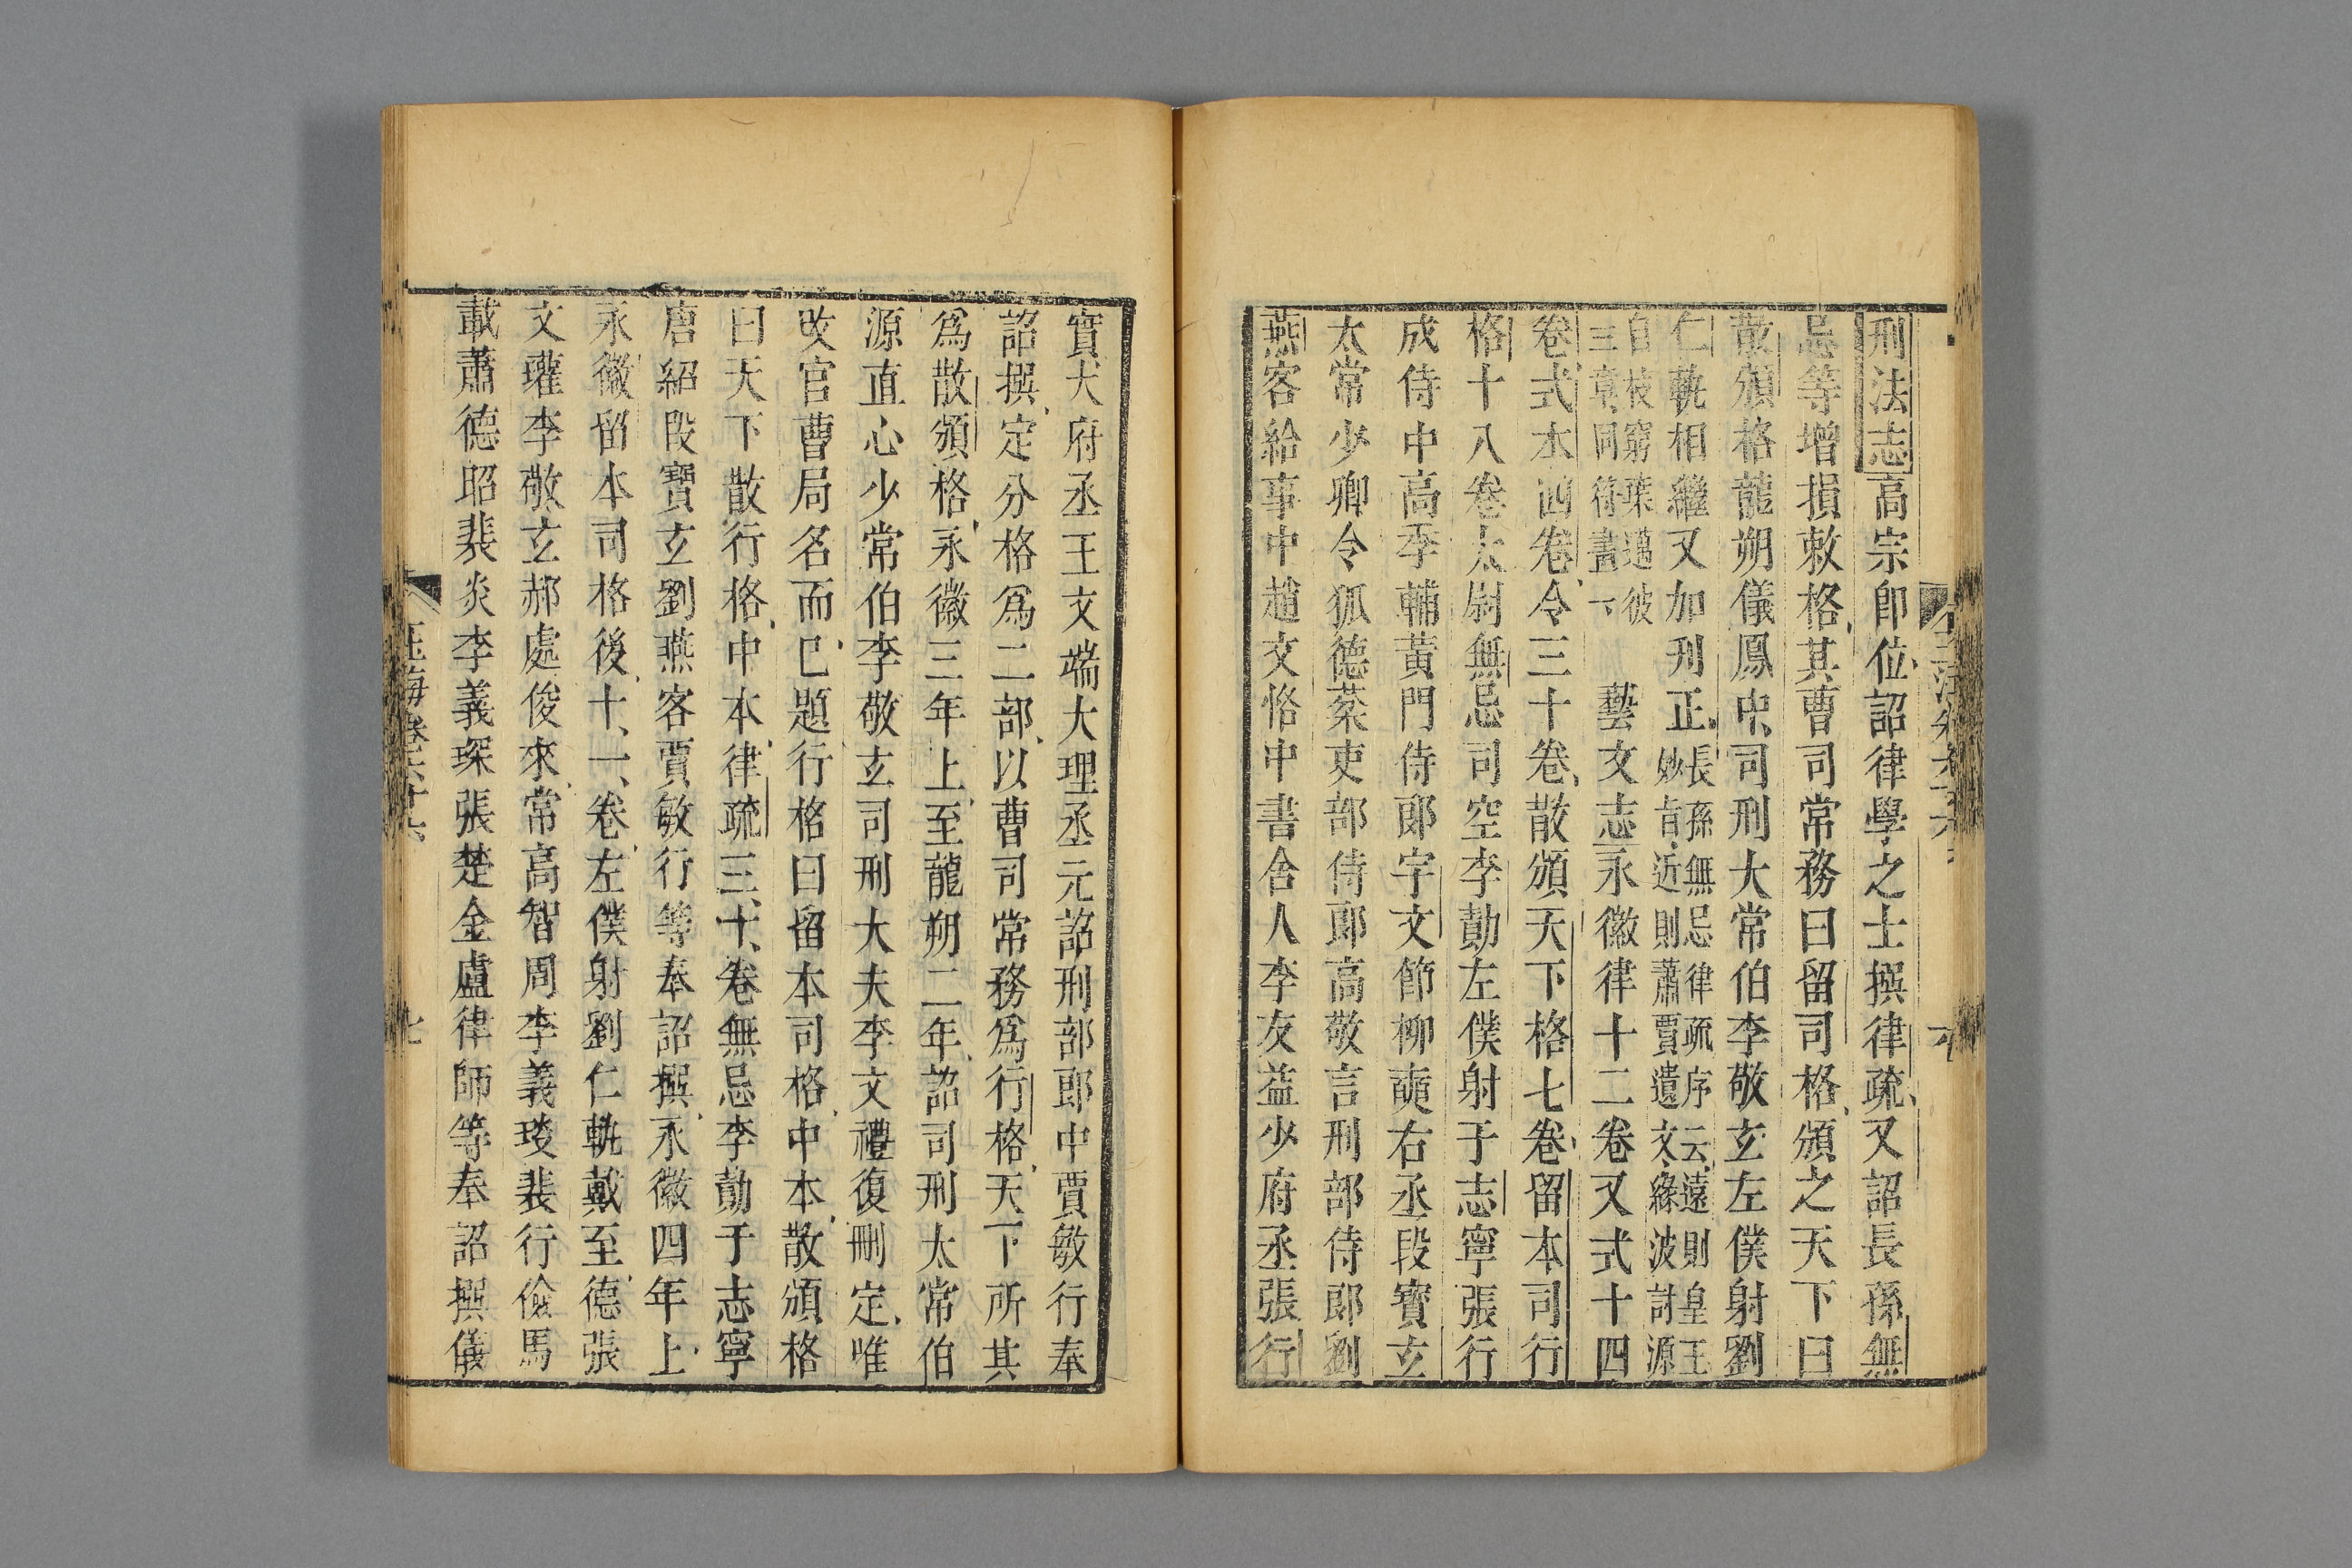 刑法志高宗卽位詔律學之士撰律疏又詔長孫無
忌等增損敕格其曹司常務曰留司格頒之天下曰
散頒格龍朔儀鳳中司刑大常伯李敬玄左僕射劉
仁軌相繼又加刋正長孫無忌律疏序云遠則皇王
妙旨近則蕭賈遺文緣波討源
自枝窮葉邁彼
三章同符畫一
藝文志永徽律十二卷又式十四
卷式本四卷令三十卷散頒天下格七卷留本司行
格十八卷太尉無忌司空李勣左僕射于志寧張行
成侍中高季輔黃門侍郞宇文節柳奭右丞段寶玄
太常少卿令狐德棻吏部侍郞高敬言刑部侍郞劉
燕客給事中趙文恪中書舍人李友益少府丞張行
實大府丞王文端大理丞元詔刑部郎中賈敏行奉
詔撰定分格爲二部以曹司常務爲行格天下所其
爲散頒格永徽三年上至龍朔二年詔司刑太常伯
源直心少常伯李敬玄司刑大夫李文禮復刪定唯
改官曹局名而已題行格曰留本司格中本散頒格
曰天下散行格中本律疏三十卷無忌李勣于志寧
唐紹段寶玄劉燕客賈敏行等奉詔撰永徽四年上
永徽留本司格後十一卷左僕射劉仁軌戴至德張
文瓘李敬玄郝處俊來常高智周李義琰裴行儉馬
載蕭德昭裴炎李義琛張楚金盧律師等奉詔撰儀
玉海卷六十六
七